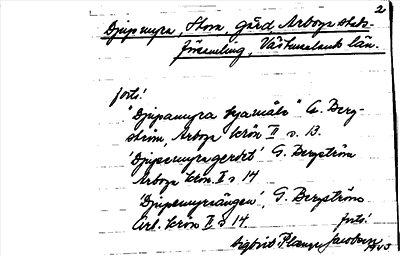 2
Djupmyra, Stora, gård, Arboga stads-
församling, Västmanlands län.
forts!
"Djupamyra hjarmåls" G. Berg-
ström, Arboga krön II s. 13.
'Djupemyragerdet' G. Bergström
Arboga krön. II s 14
'Djupemyraängen', G. Bergström
Arb. krön II s 14. forts!
Sigbrit Plange Jacobson